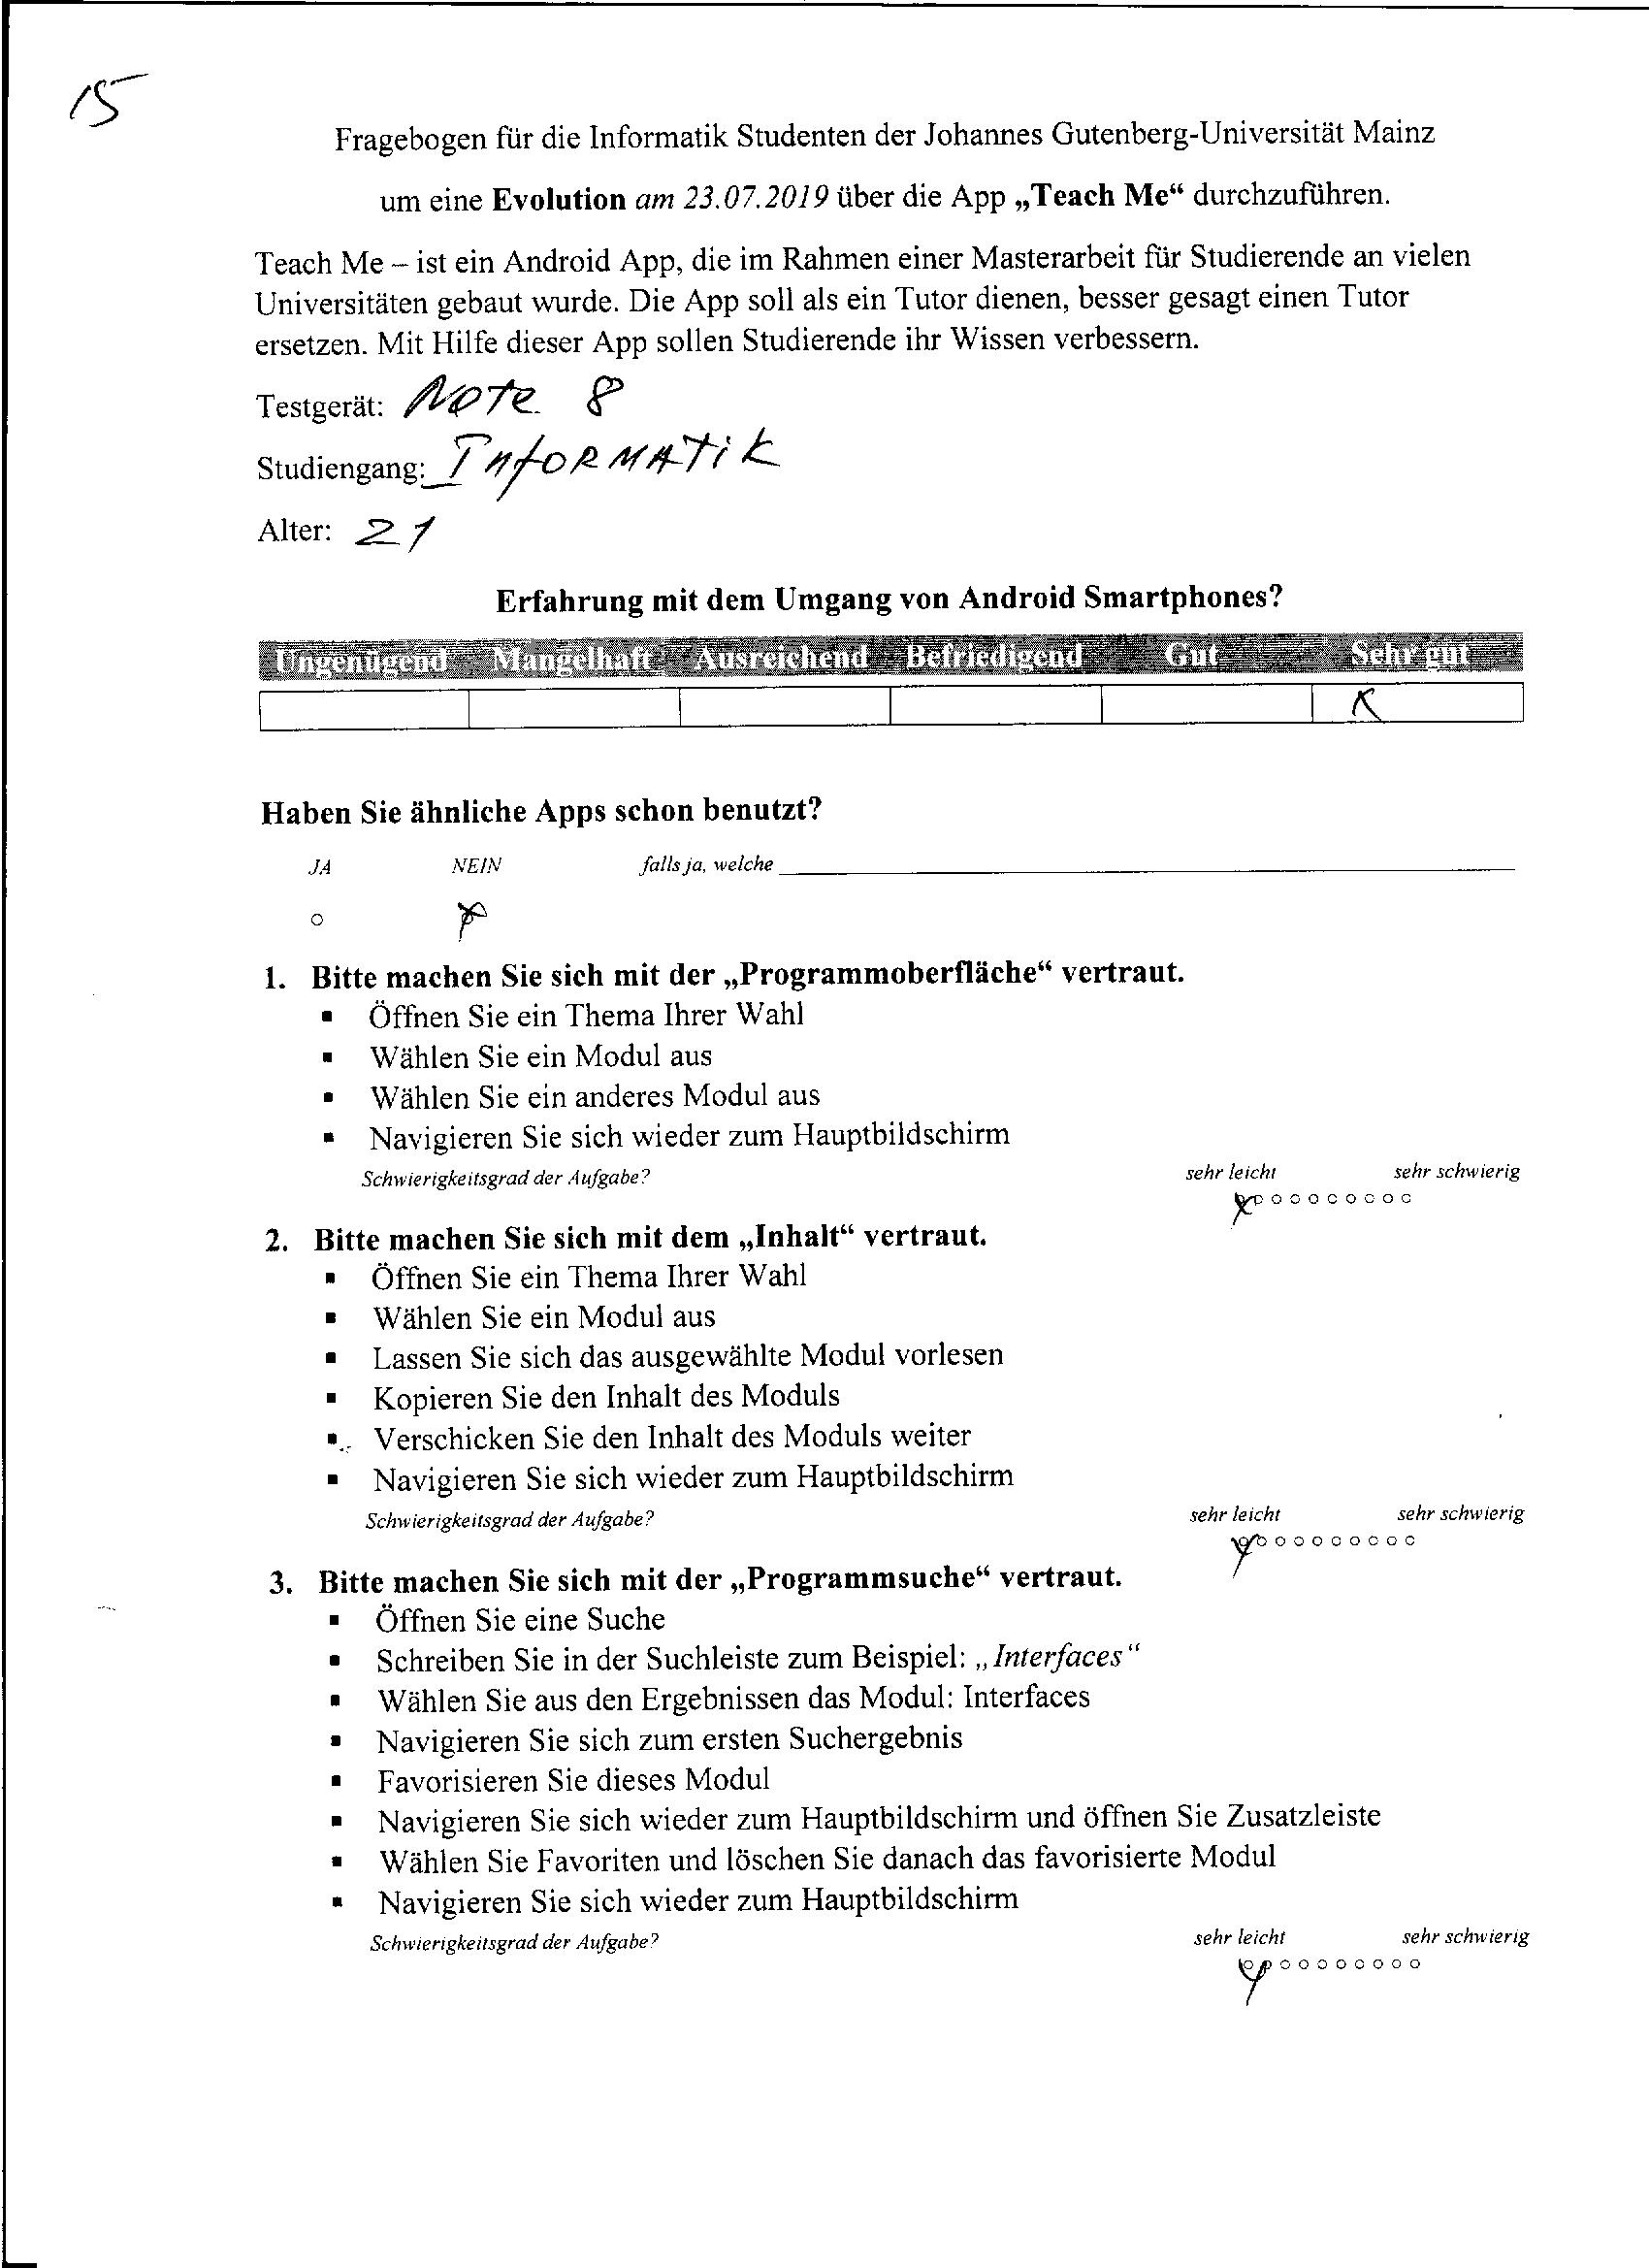 15
Fragebogen für die Informatik Studenten der Johannes Gutenberg-Universität Mainz
um eine Evolution am 23.07.2019 über die App „Teach Me“ durchzuführen.
Teach Me – ist ein Android App, die im Rahmen einer Masterarbeit für Studierende an vielen
Universitäten gebaut wurde. Die App soll als ein Tutor dienen, besser gesagt einen Tutor
ersetzen. Mit Hilfe dieser App sollen Studierende ihr Wissen verbessern.
Testgerät: Note 8
Studiengang: Informatik
Alter: 21
Erfahrung mit dem Umgang von Android Smartphones?
Ungenügend Mangelhaft Ausreichend Befriedigend Gut Sehr gut
Haben Sie ähnliche Apps schon benutzt?
JA NEIN falls ja, welche
1. Bitte machen Sie sich mit der „Programmoberfläche“ vertraut.
▪ Öffnen Sie ein Thema Ihrer Wahl
▪ Wählen Sie ein Modul aus
▪ Wählen Sie ein anderes Modul aus
▪ Navigieren Sie sich wieder zum Hauptbildschirm
Schwierigkeitsgrad der Aufgabe? sehr leicht sehr schwierig
2. Bitte machen Sie sich mit dem „Inhalt“ vertraut.
▪ Öffnen Sie ein Thema Ihrer Wahl
▪ Wählen Sie ein Modul aus
▪ Lassen Sie sich das ausgewählte Modul vorlesen
▪ Kopieren Sie den Inhalt des Moduls
▪ Verschicken Sie den Inhalt des Moduls weiter
▪ Navigieren Sie sich wieder zum Hauptbildschirm
Schwierigkeitsgrad der Aufgabe? sehr leicht sehr schwierig
3. Bitte machen Sie sich mit der „Programmsuche“ vertraut.
▪ Öffnen Sie eine Suche
▪ Schreiben Sie in der Suchleiste zum Beispiel: „Interfaces“
▪ Wählen Sie aus den Ergebnissen das Modul: Interfaces
▪ Navigieren Sie sich zum ersten Suchergebnis
▪ Favorisieren Sie dieses Modul
▪ Navigieren Sie sich wieder zum Hauptbildschirm und öffnen Sie Zusatzleiste
▪ Wählen Sie Favoriten und löschen Sie danach das favorisierte Modul
▪ Navigieren Sie sich wieder zum Hauptbildschirm
Schwierigkeitsgrad der Aufgabe? sehr leicht sehr schwierig